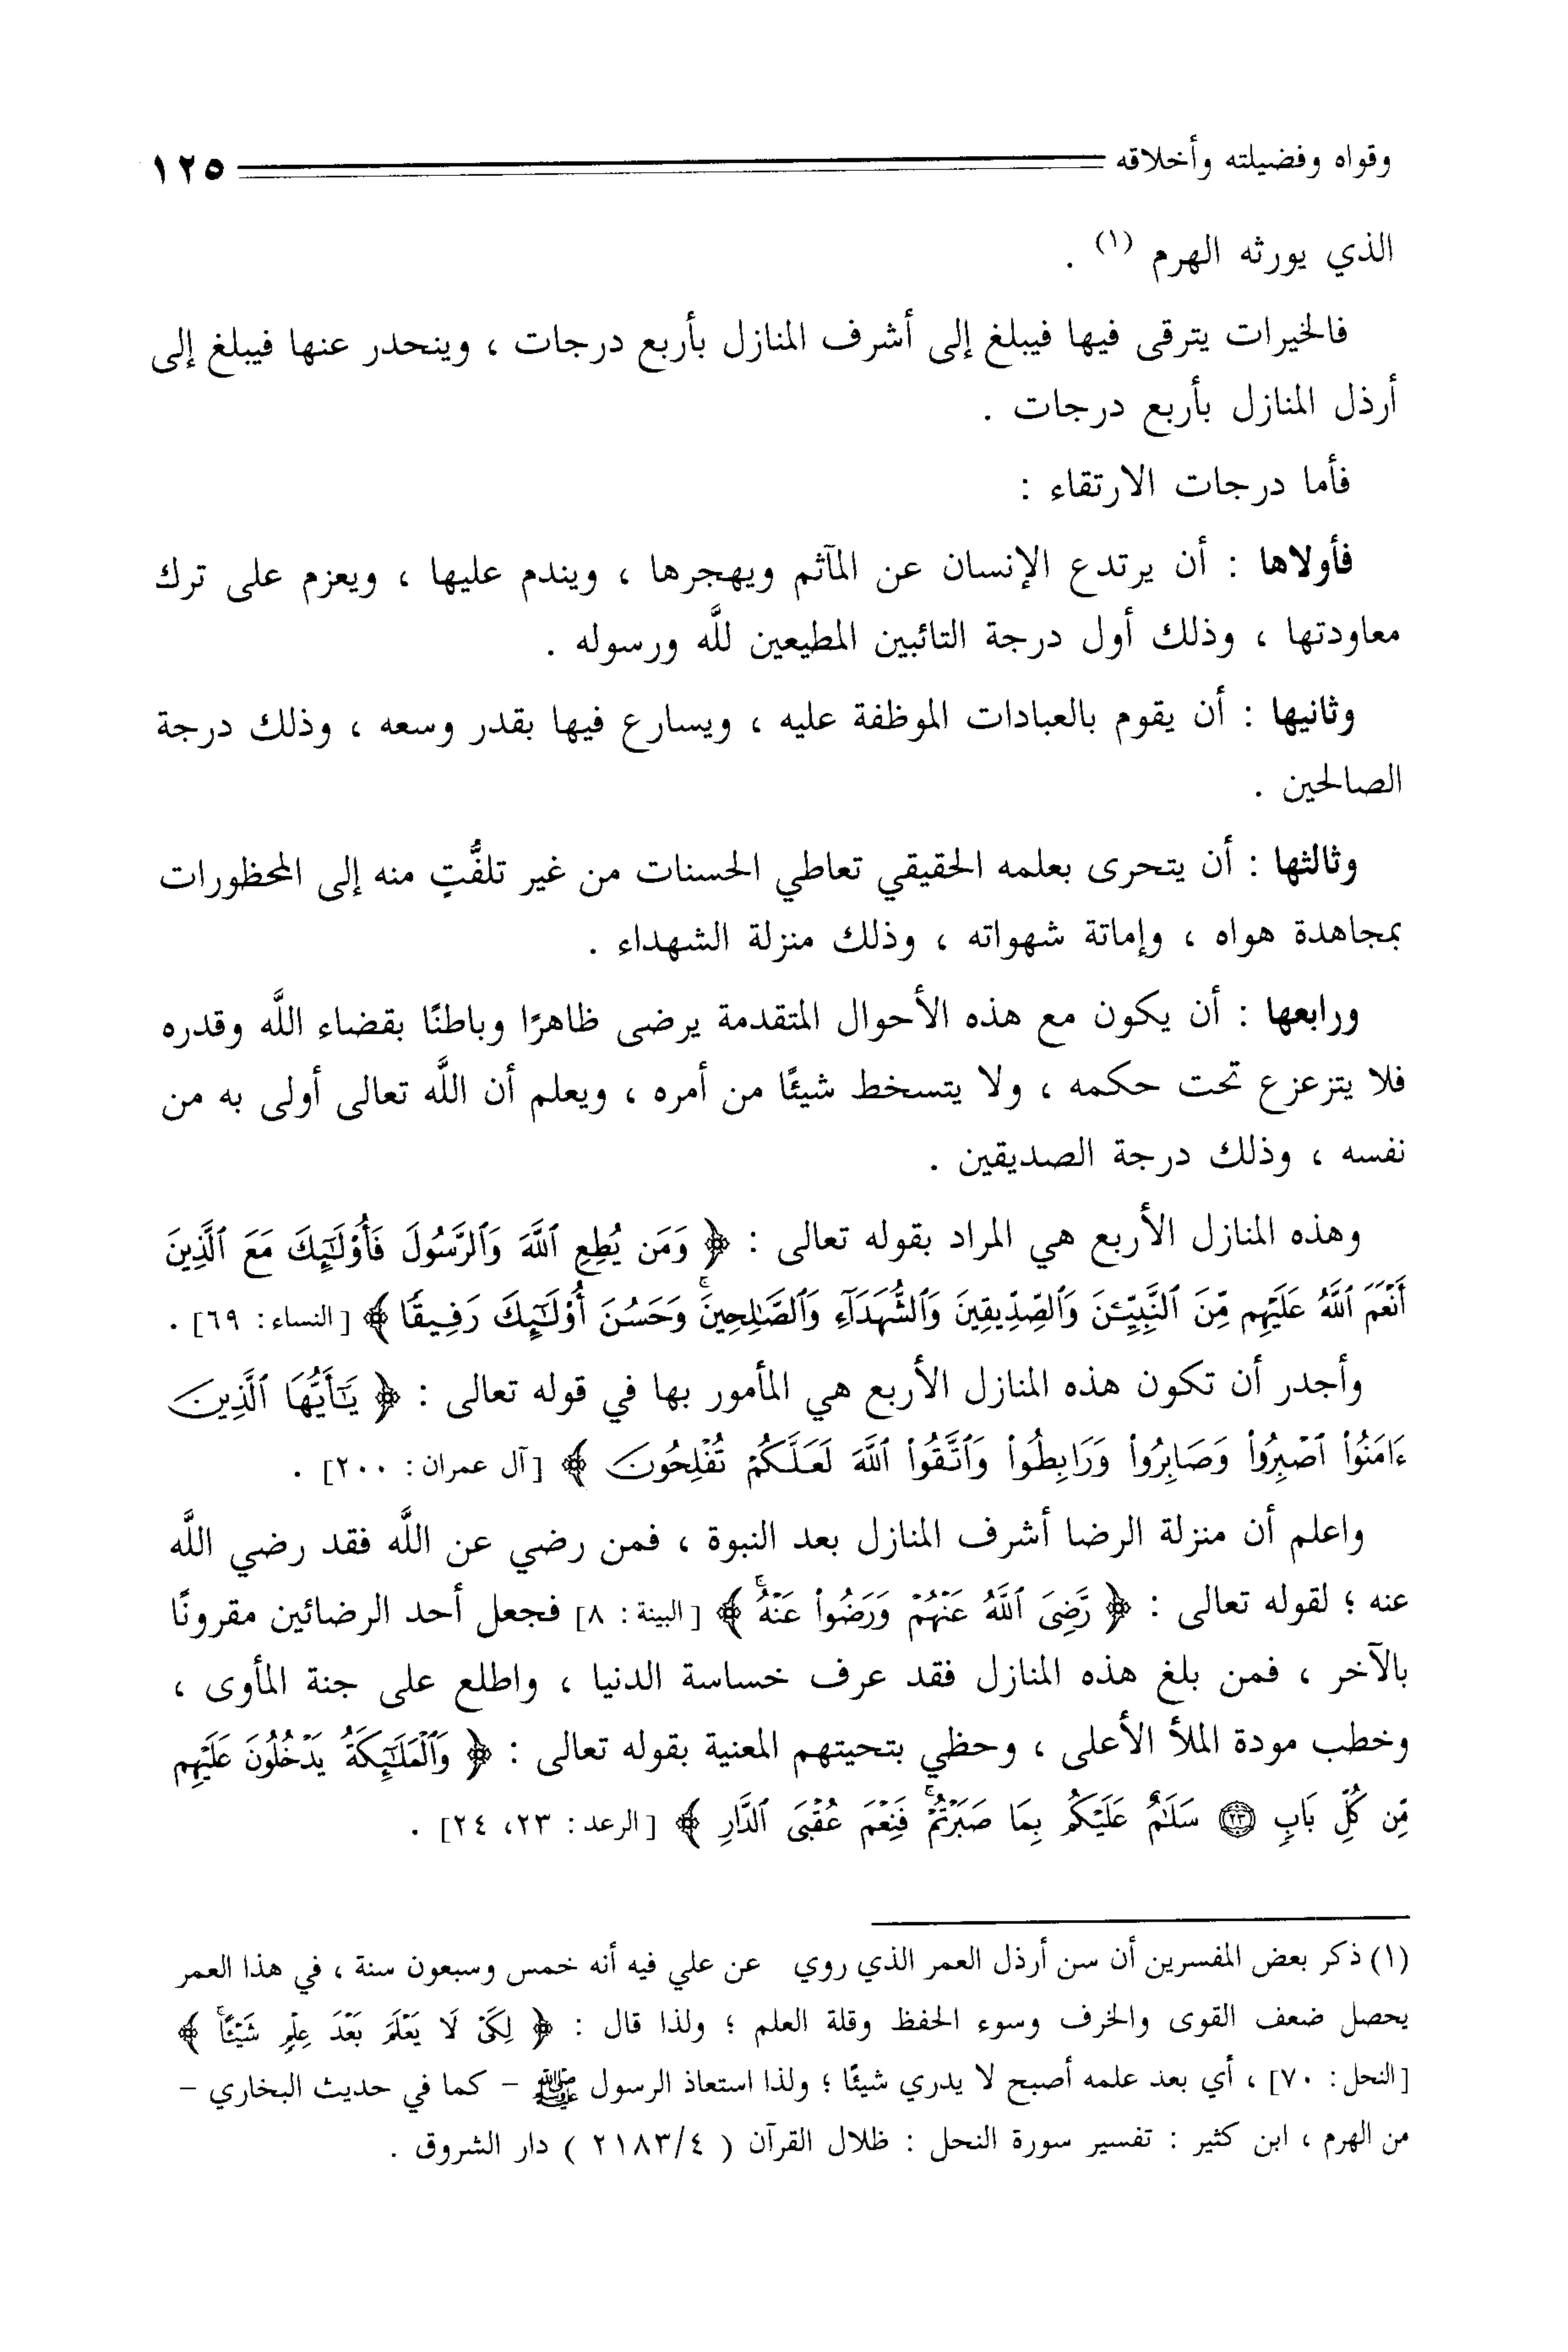 وقواه وفضيلته وأخلاقه ١٢٥
الذي يورثه الهرم (١) .
فالخيرات يترقى فيها فيبلغ إلى أشرف المنازل بأربع درجات ، وينحدر عنها فيبلغ إلى
أرذل المنازل بأربع درجات .
فأما درجات الارتقاء :
فأولاها : أن يرتدع الإنسان عن المآثم ويهجرها ، ويندم عليها ، ويعزم على ترك
معاودتها ، وذلك أول درجة التائبين المطيعين للَّه ورسوله .
وثانيها : أن يقوم بالعبادات الموظفة عليه ، ويسارع فيها بقدر وسعه ، وذلك درجة
الصالحين .
وثالثها : أن يتحرى بعلمه الحقيقي تعاطي الحسنات من غير تلفُّتٍ منه إلى المحظورات
بمجاهدة هواه ، وإماتة شهواته ، وذلك منزلة الشهداء .
ورابعها : أن يكون مع هذه الأحوال المتقدمة يرضى ظاهرًا وباطنًا بقضاء اللَّه وقدره
فلا يتزعزع تحت حكمه ، ولا يتسخط شيئًا من أمره ، ويعلم أن اللَّه تعالى أولى به من
نفسه ، وذلك درجة الصديقين .
وهذه المنازل الأربع هي المراد بقوله تعالى : ﴿ وَمَن يُطِعِ ٱللَّهَ وَٱلرَّسُولَ فَأُوْلَٰٓئِكَ مَعَ ٱلَّذِينَ
أَنْعَمَ ٱللَّهُ عَلَيْهِم مِّنَ ٱلنَّبِيِّـۧنَ وَٱلصِّدِّيقِينَ وَٱلشُّهَدَآءِ وَٱلصَّٰلِحِينَۚ وَحَسُنَ أُوْلَٰٓئِكَ رَفِيقًا ﴾ [النساء: ٦٩] .
وأجدر أن تكون هذه المنازل الأربع هي المأمور بها في قوله تعالى : ﴿ يَٰٓأَيُّهَا ٱلَّذِينَ
ءَامَنُواْ ٱصْبِرُواْ وَصَابِرُواْ وَرَابِطُواْ وَٱتَّقُواْ ٱللَّهَ لَعَلَّكُمْ تُفْلِحُونَ ﴾ [آل عمران: ٢٠٠] .
واعلم أن منزلة الرضا أشرف المنازل بعد النبوة ، فمن رضي عن اللَّه فقد رضي اللَّه
عنه ؛ لقوله تعالى : ﴿ رَّضِيَ ٱللَّهُ عَنْهُمْ وَرَضُواْ عَنْهُۚ ﴾ [البينة: ٨] فجعل أحد الرضائين مقرونًا
بالآخر ، فمن بلغ هذه المنازل فقد عرف خساسة الدنيا ، واطلع على جنة المأوى ،
وخطب مودة الملأ الأعلى ، وحظي بتحيتهم المعنية بقوله تعالى : ﴿ وَٱلْمَلَٰٓئِكَةُ يَدْخُلُونَ عَلَيْهِم
مِّن كُلِّ بَابٍ ٢٣ سَلَٰمٌ عَلَيْكُم بِمَا صَبَرْتُمْۚ فَنِعْمَ عُقْبَى ٱلدَّارِ ﴾ [الرعد: ٢٣، ٢٤] .
(١) ذكر بعض المفسرين أن سن أرذل العمر الذي روي عن علي فيه أنه خمس وسبعون سنة ، في هذا العمر
يحصل ضعف القوى والخرف وسوء الحفظ وقلة العلم ؛ ولذا قال : ﴿ لِكَىْ لَا يَعْلَمَ بَعْدَ عِلْمٍ شَيْـًٔاۚ ﴾
[النحل: ٧٠] ، أي بعد علمه أصبح لا يدري شيئًا ؛ ولذا استعاذ الرسول ﷺ - كما في حديث البخاري -
من الهرم ، ابن كثير : تفسير سورة النحل : ظلال القرآن ( ٢١٨٣/٤ ) دار الشروق .